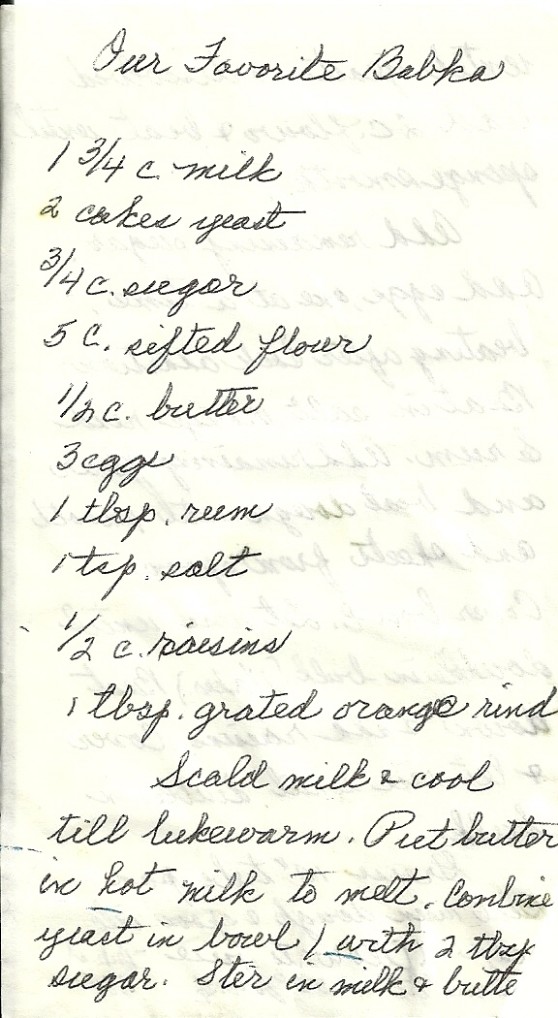 Our Favorite Babka
1 3/4 c. milk
2 cakes yeast
3/4 c. sugar
5 c. sifted flour
1/2 c. butter
3 eggs
1 tbsp. rum
1 tsp. salt
1/2 c. raisins
1 tbsp. grated orange rind
Scald milk & cool
till lukewarm. Put butter
in hot milk to melt. Combine
yeast in bowl with 2 tbsp
sugar. Ster in milk & butte